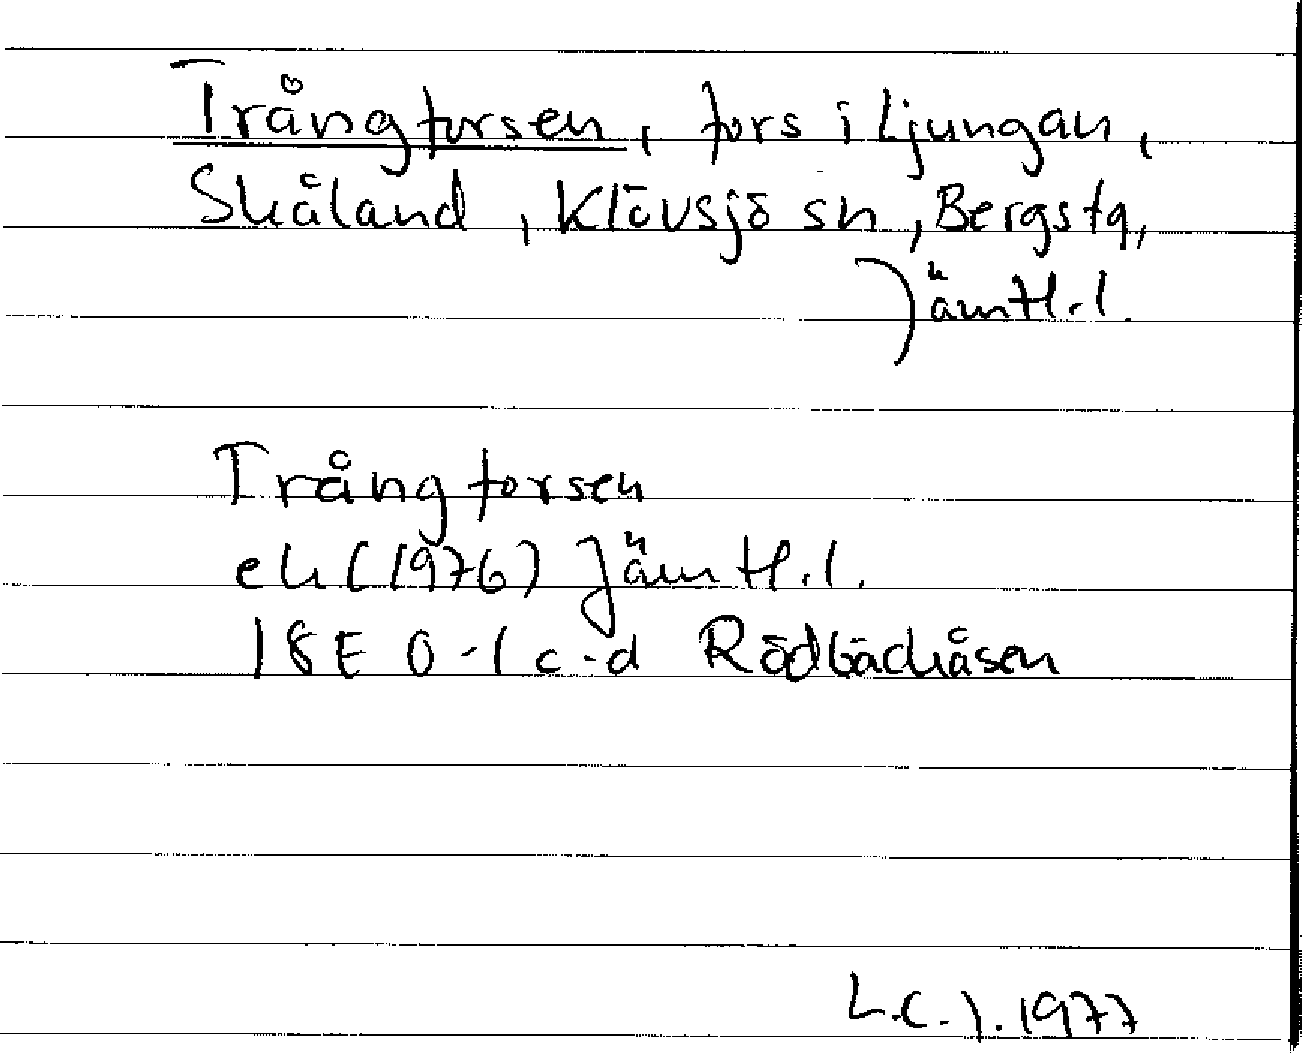 Trångforsen, fors i Ljungan,
Skåland, Klövsjö sn, Bergs tg,
Jämtl. l.
Trångforsen
ek (1976) Jämtl. l.
18E 0-1 c-d Rödbäckåsen
L.C.J. 1977